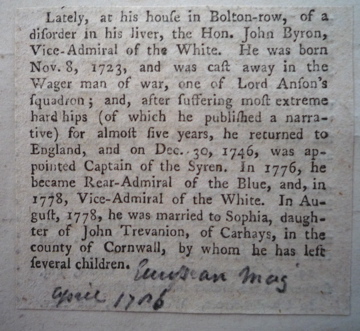 Lately, at his houſe in Bolton-row, of a
diſorder in his liver, the Hon. John Byron,
Vice-Admiral of the White. He was born
Nov. 8, 1723, and was caſt away in the
Wager man of war, one of Lord Anſon's
ſquadron; and, after ſuffering moſt extreme
hardſhips (of which he publiſhed a narra-
tive) for almoſt five years, he returned to
England, and on Dec. 30, 1746, was ap-
pointed Captain of the Syren. In 1776, he
became Rear-Admiral of the Blue, and, in
1778, Vice-Admiral of the White. In Au-
guſt, 1778, he was married to Sophia, daugh-
ter of John Trevanion, of Carhays, in the
county of Cornwall, by whom he has left
ſeveral children. European Mag
April 1786